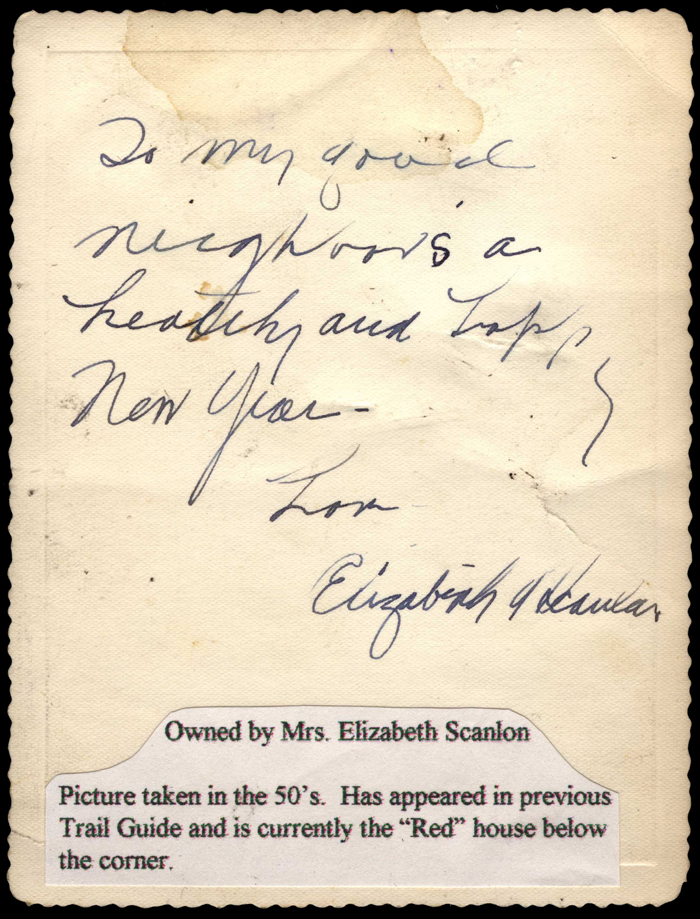 To my good
neighbors a
healthy and happy
New Year -
Love
Elizabeth Scanlan
Owned by Mrs. Elizabeth Scanlon
Picture taken in the 50's. Has appeared in previous
Trail Guide and is currently the “Red” house below
the corner.